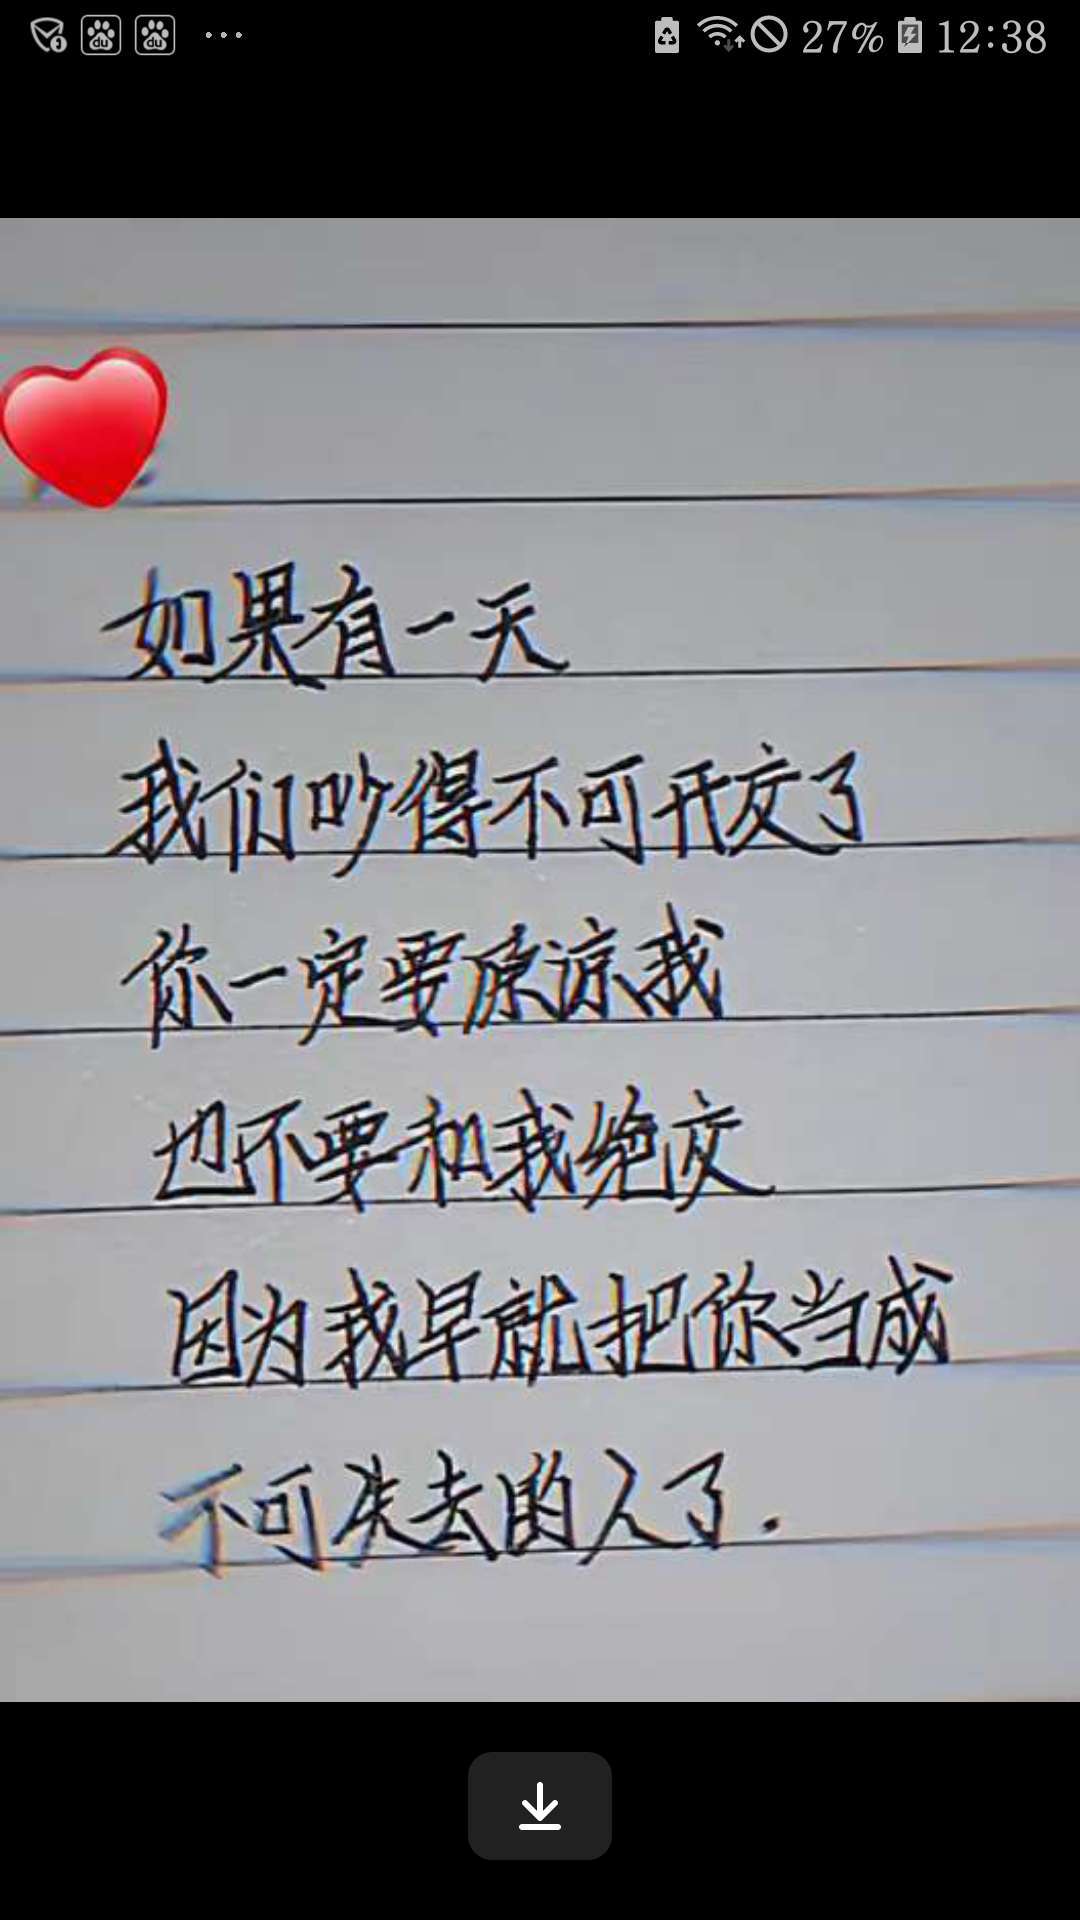 27% 12:38
如果有一天
我们吵得不可开交了
你一定要原谅我
也不要和我绝交
因为我早就把你当成
不可失去的人了.